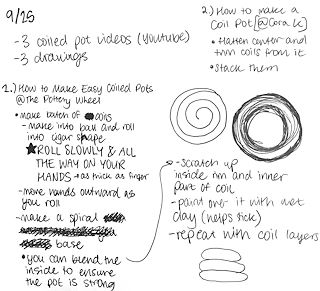 9/25
-3 coiled pot videos (youtube)
-3 drawings
1.) How to Make Easy Coiled Pots
@The Pottery Wheel
• make batch of coils
- make into ball and roll
into cigar shape
★ROLL SLOWLY & ALL
THE WAY ON YOUR
HANDS → as thick as finger
- move hands outward as
you roll
- make a spiral
base
• you can blend the
inside to ensure
the pot is strong
2.) How to make a
Coil Pot [@Cora L]
• flatten center and
turn coils from it
• Stack them
- scratch up
inside rim and inner
part of coil
- paint over it with wet
clay (helps stick)
- repeat with coil layers